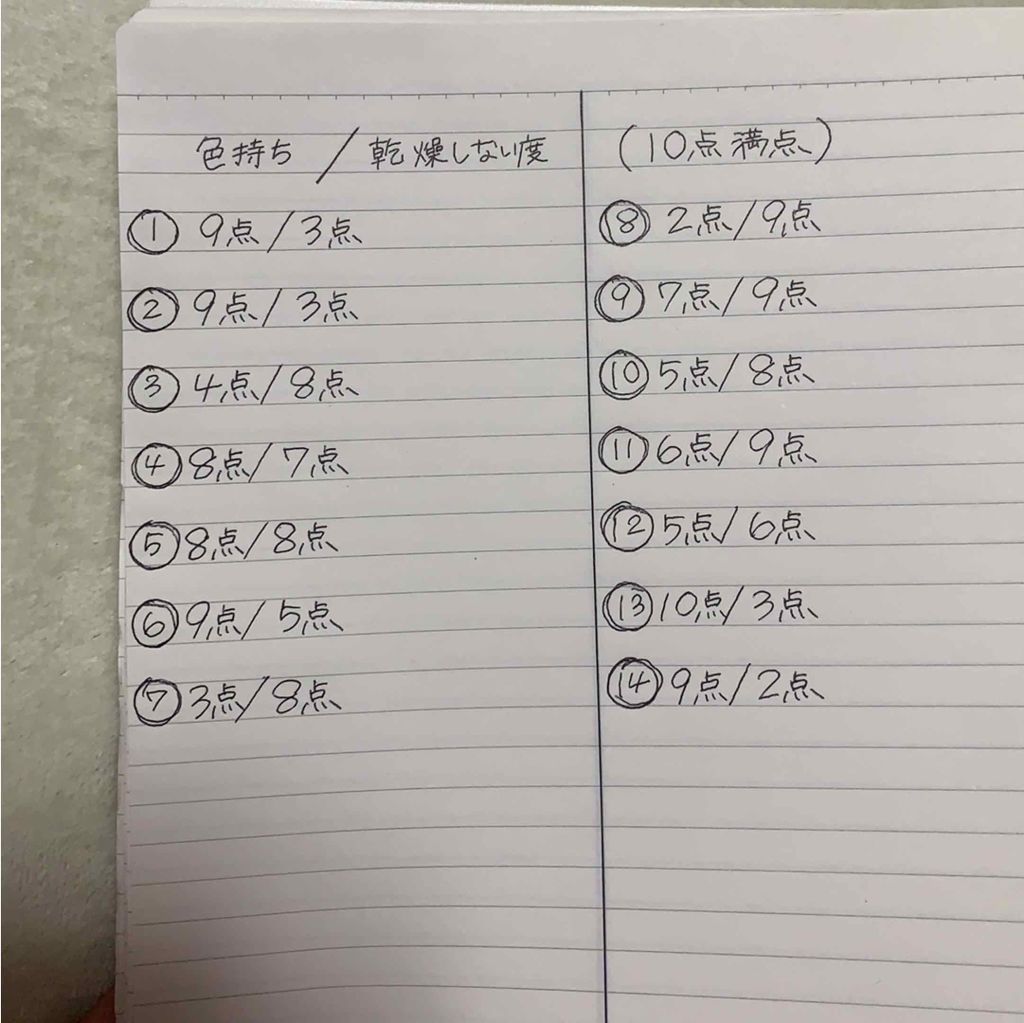 色持ち / 乾燥しない度 (10点満点)
① 9点 / 3点
② 9点 / 3点
③ 4点 / 8点
④ 8点 / 7点
⑤ 8点 / 8点
⑥ 9点 / 5点
⑦ 3点 / 8点
⑧ 2点 / 9点
⑨ 7点 / 9点
⑩ 5点 / 8点
⑪ 6点 / 9点
⑫ 5点 / 6点
⑬ 10点 / 3点
⑭ 9点 / 2点